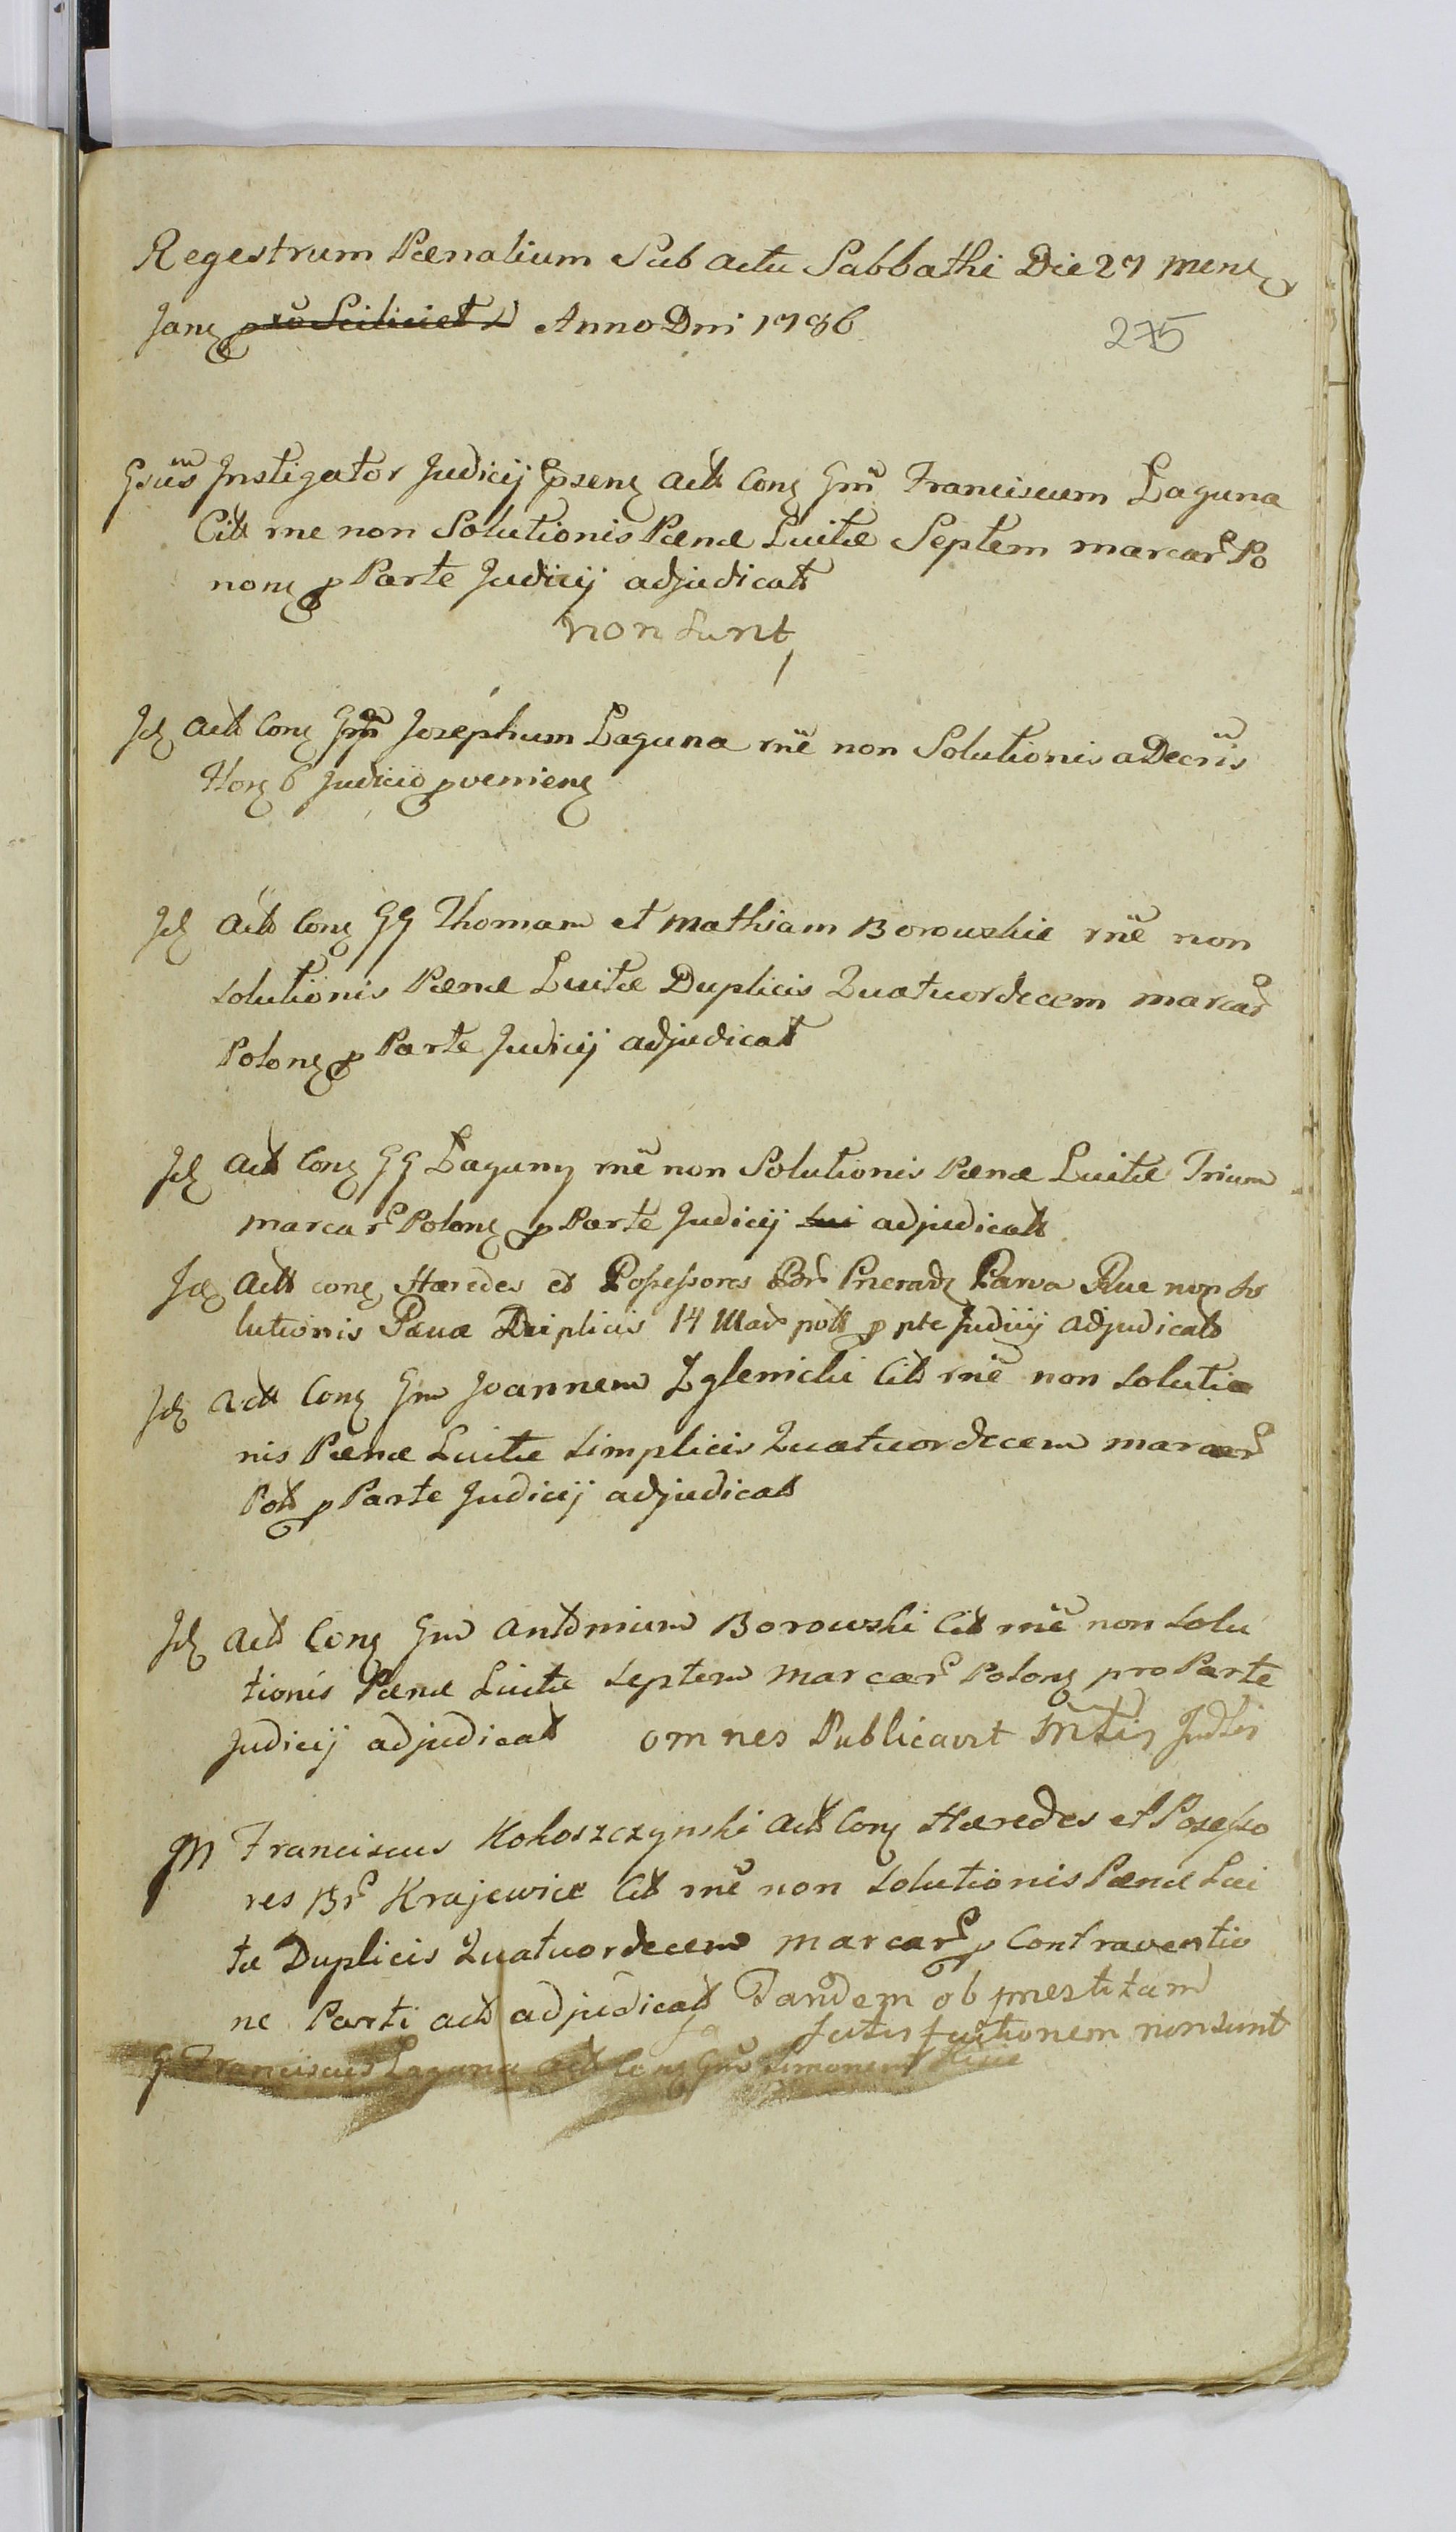 Regestrum Pænalium Sub actu Sabbathi Die 27 Mens
Janų Anno Dni 1786
275
Instigator Judicij actt Coną Gm Franciscum Łaguna
Citt rne non Solutionis Pænæ Luitæ Septem marcar Po
nonų p Parte Judicij adjudicatt
non sunt
Id actt Conų Gm Josephum Łaguna rne non Solutionis a Decris
Judicio pvenienų
Id actt Conų GG Thomam et Mathiam Borowskie rne non
solutionis Pænæ Luitæ Duplicis Quatuordecem marcar
Polonų p Parte Judicij adjudicatt
Id actt Conų GG Łaguny rne non Solutionis Pænæ Luitæ Trium
marcar Polonų p Parte Judicij adjudicatt
Id actt conų Hæredes et Possessores Br Parva rne non So
lutionis Pænæ Duplicis 14 Mar pott p pte Judicij adjudicatt
Id actt Conų Gm Joannem Zglenicki Citt rne non solutio
nis Pænæ Luitæ simplicis Quatuordecem marcar
Pott p Parte Judicij adjudicatt
Id actt Conų Gm Antonium Borowski Citt rne non solu
tionis Pænæ Luitæ septem marcar Polonų pro Parte
Judicij adjudicatt omnes Publicavit
M Franciscus Kokoszczynski actt Conų Hæredes et Posesso
res Br Krajewice Citt rne non solutionis Pænæ Lui
tæ Duplicis Quatuordecem marcar p Contraventio
ne Parti actt adjudicatt Tandem ob prestitam
satisfactionem non sunt
G Franciscus Łaguna actt Conų Gm Simonem